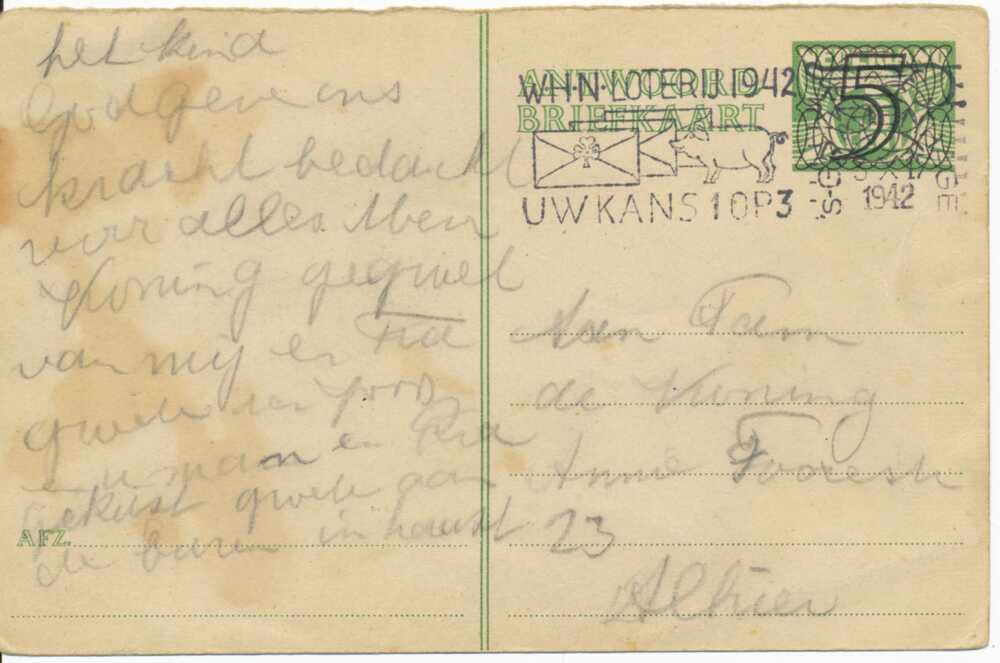 het kind
God geve ons
kracht bedackt
voor alles Mben
Koning gegroet
van mij en Fia
groete van Joop
u man en Ria
gekust groete aan
de buren in haast
AFZ.
ANTWOORD
BRIEFKAART
WHN·LOTERIJ 1942
UW KANS 1 OP 3
5
1942
Aan Fam
de Koning
Anne
23